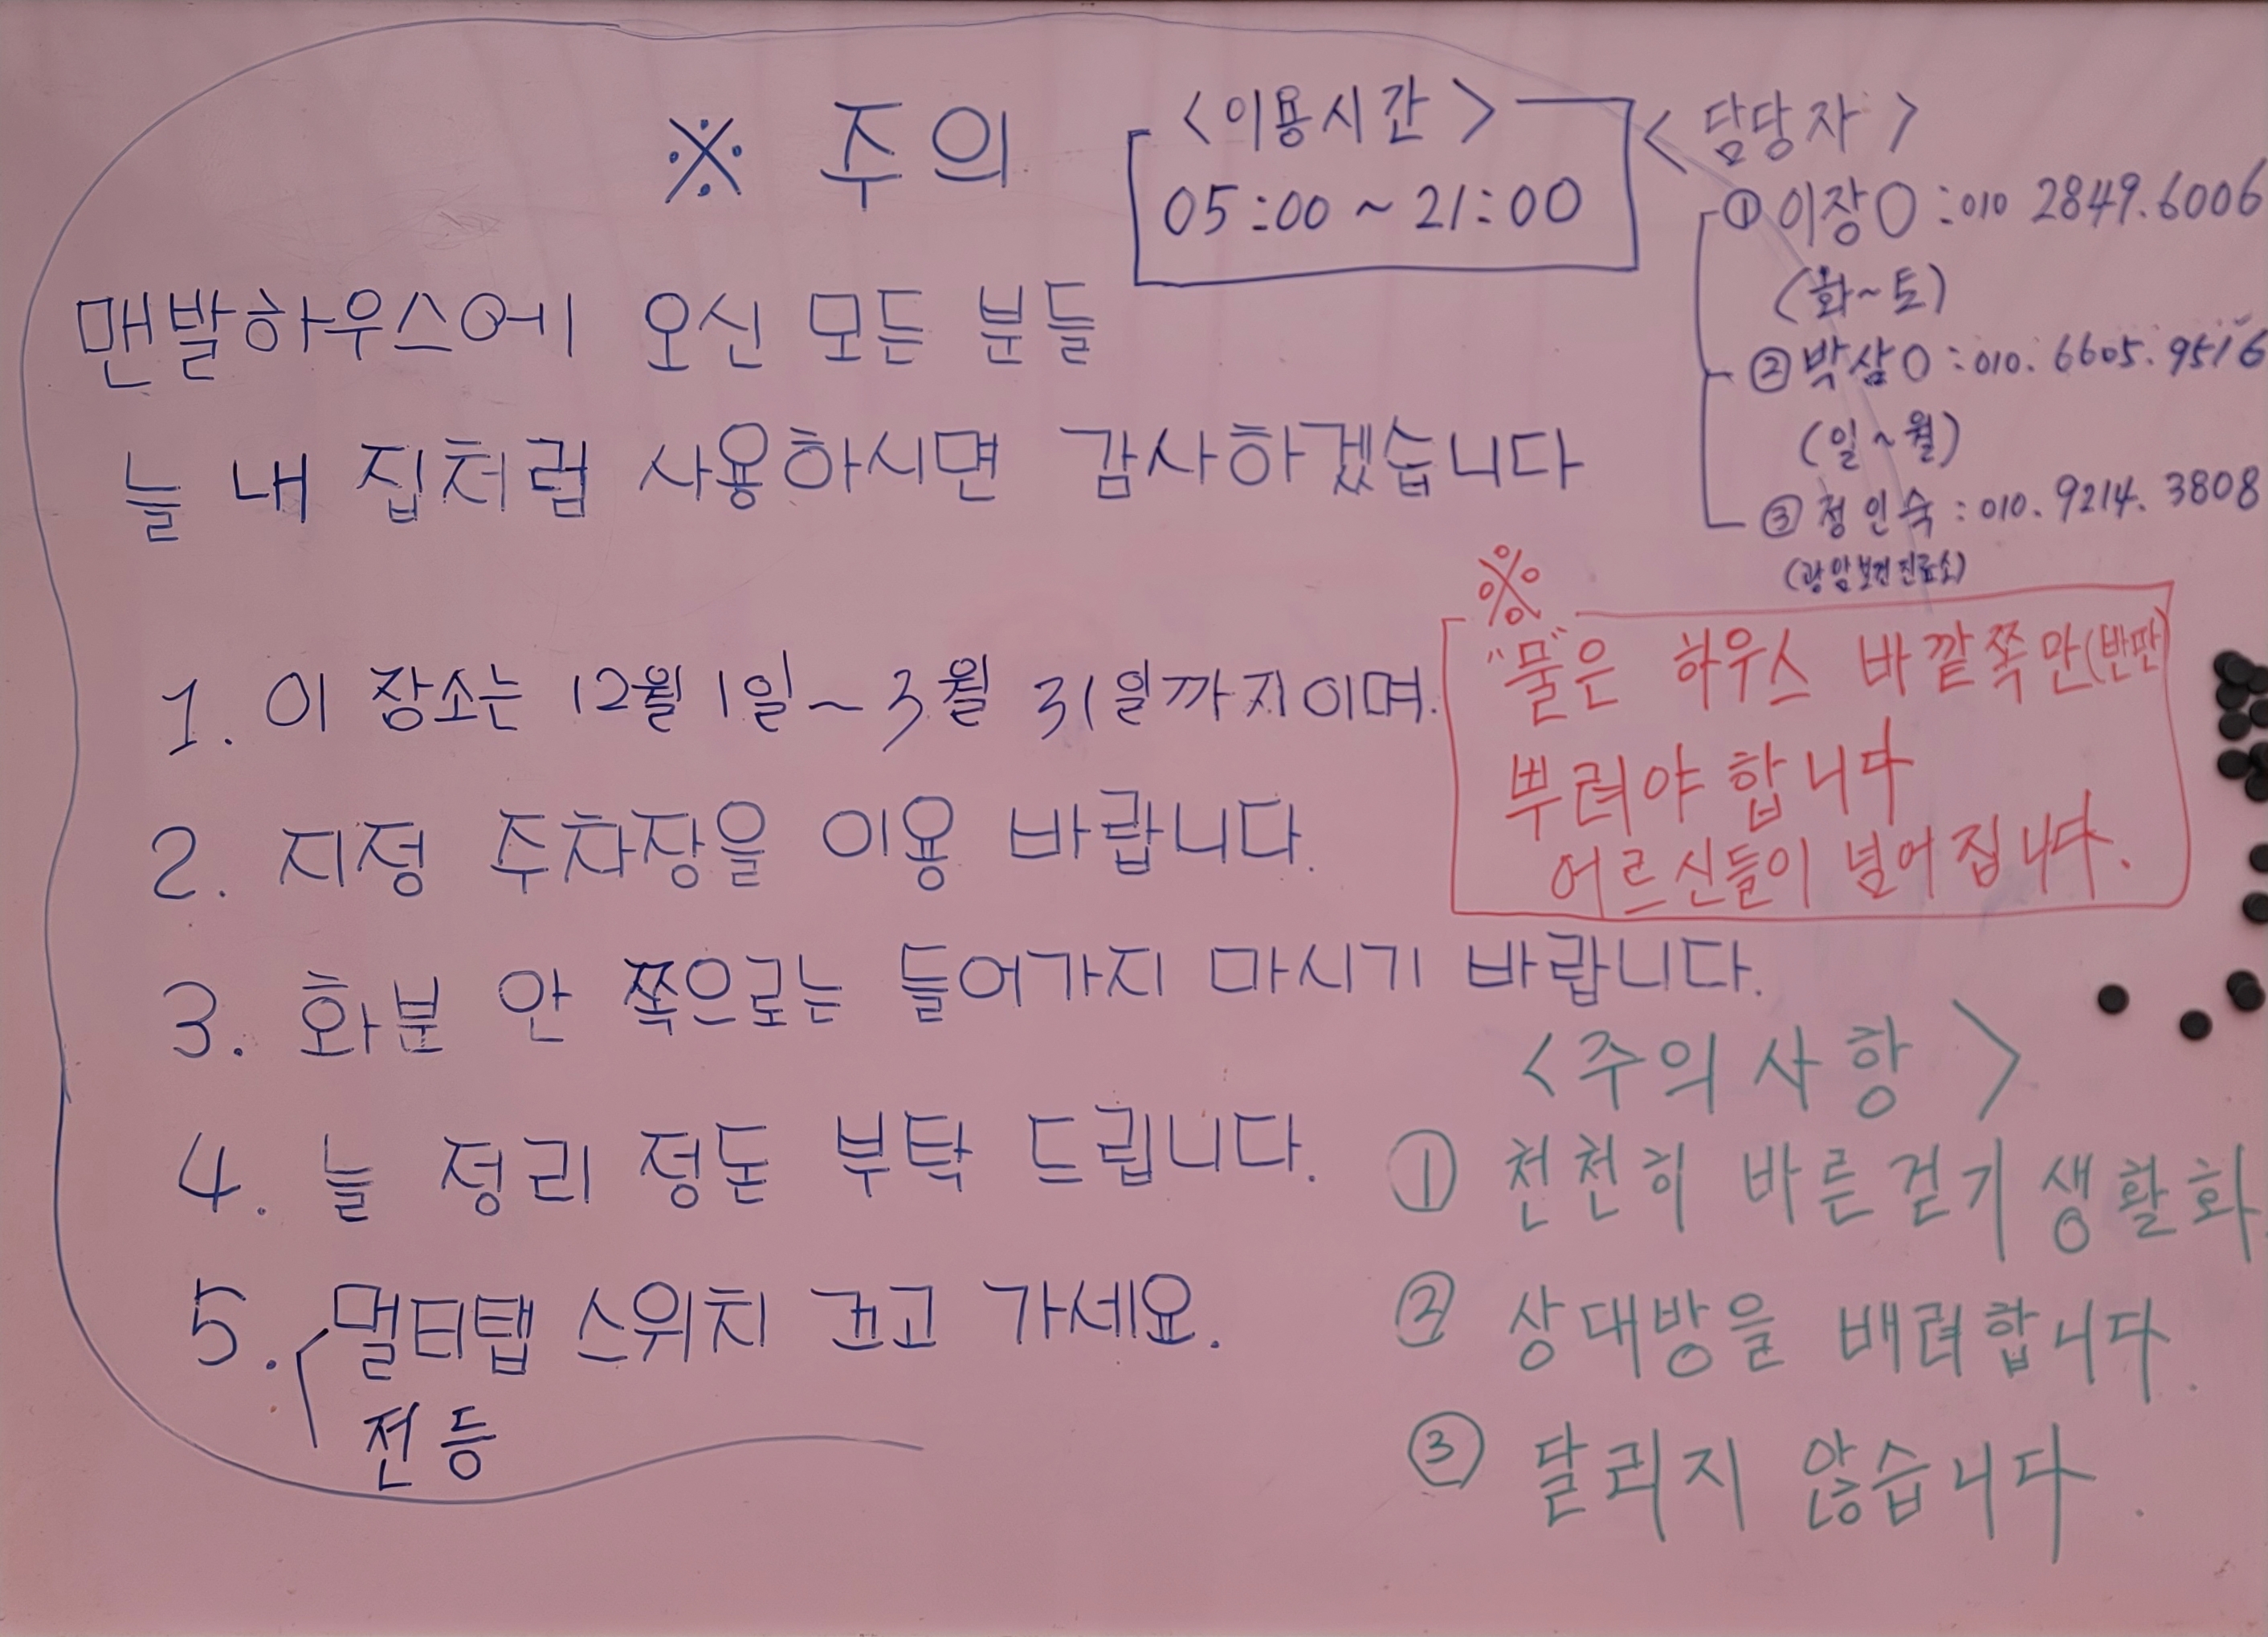 ※ 주의
<이용시간>
05:00 ~ 21:00
<담당자>
① 이장○ : 010 2849.6006
(화~토)
② 박삼○ : 010. 6605. 9516
(일~월)
③ 정인숙 : 010. 9214. 3808
(광암보건진료소)
맨발하우스에 오신 모든 분들
늘 내 집처럼 사용하시면 감사하겠습니다
1. 이 장소는 12월 1일~3월 31일까지이며.
2. 지정 주차장을 이용 바랍니다.
3. 화분 안 쪽으로는 들어가지 마시기 바랍니다.
4. 늘 정리 정돈 부탁 드립니다.
5. 멀티탭 스위치 끄고 가세요.
전등
※
"물"은 하우스 바깥쪽만(반만)
뿌려야 합니다
어르신들이 넘어집니다.
<주의사항>
① 천천히 바른걷기 생활화.
② 상대방을 배려합니다.
③ 달리지 않습니다.